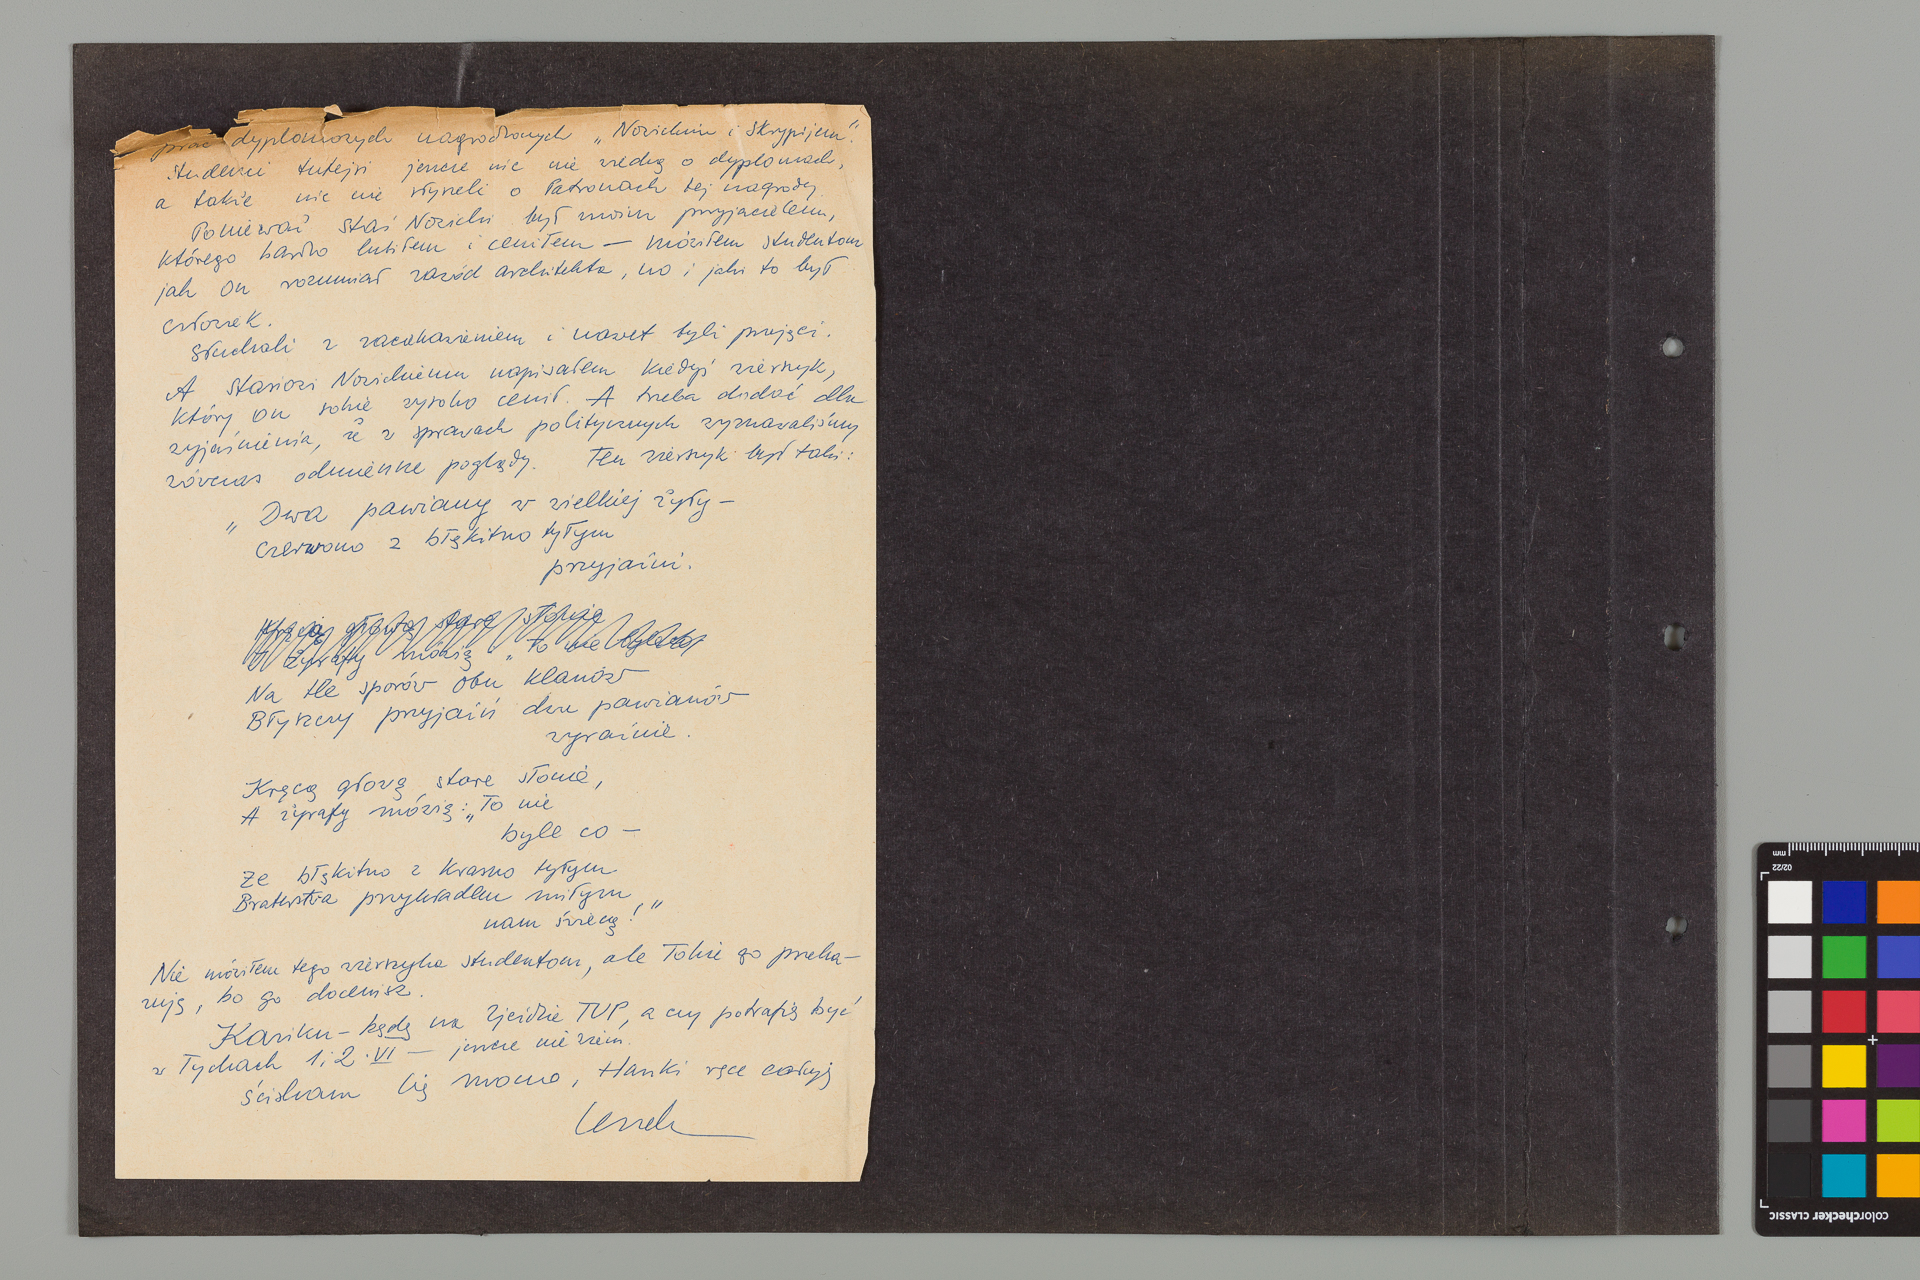 prac dyplomowych nagrodzonych „Nowickim i Skrypijem”.
Studenci tutejsi jeszcze nic nie wiedzą o dyplomach,
a także nic nie słyszeli o Patronach tej nagrody.
Ponieważ Staś Nowicki był moim przyjacielem,
którego bardzo lubiłem i ceniłem — mówiłem studentom
jak On rozumiał zawód architekta, no i jaki to był
człowiek.
Słuchali z zaciekawieniem i nawet byli przejęci.
A Stasiowi Nowickiemu napisałem kiedyś wierszyk,
który on sobie wysoko cenił. A trzeba dodać dla
wyjaśnienia, że w sprawach politycznych wyznawaliśmy
wówczas odmienne poglądy. Ten wierszyk był taki:
„Dwa pawiany w wielkiej żyły —
Czerwono z błękitno tyłym
przyjaźni.
Kręcą głową stare słonie
A żyrafy mówią „to nie byle co
Na tle sporów obu klanów
Błyszczy przyjaźń dwu pawianów
wyraźnie.
Kręcą głową stare słonie,
A żyrafy mówią: „To nie
byle co —
Że błękitno z krasno tyłym
Braterstwa przykładem miłym
nam świecą!”
Nie mówiłem tego wierszyka studentom, ale Tobie go przeka-
zuję, bo go docenisz.
Kaziku — będę na Zjeździe TUP, a czy potrafię być
w Tychach 1 i 2.VI — jeszcze nie wiem.
Ściskam Cię mocno, Hanki ręce całuję
Leszek
colorchecker CLASSIC
mm
02/22